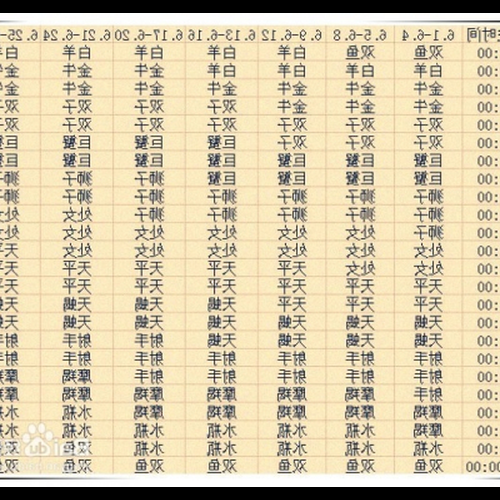 时间 6.1-6.4 6.5-6.8 6.9-6.12 6.13-6.16 6.17-6.20 6.21-6.24 6.25-
:00 双鱼 双鱼 白羊 白羊 白羊 白羊 白羊
:00 白羊 白羊 白羊 白羊 金牛 金牛 金牛
:00 金牛 金牛 金牛 金牛 金牛 金牛 金牛
:00 金牛 金牛 金牛 双子 双子 双子 双子
:00 双子 双子 双子 双子 双子 双子 双子
:00 双子 双子 双子 巨蟹 巨蟹 巨蟹 巨蟹
:00 巨蟹 巨蟹 巨蟹 巨蟹 巨蟹 巨蟹 巨蟹
:00 巨蟹 巨蟹 巨蟹 巨蟹 狮子 狮子 狮子
:00 狮子 狮子 狮子 狮子 狮子 狮子 狮子
:00 狮子 狮子 狮子 狮子 处女 处女 处女
:00 狮子 处女 处女 处女 处女 处女 处女
:00 处女 处女 处女 处女 处女 处女 天平
:00 处女 处女 天平 天平 天平 天平 天平
:00 天平 天平 天平 天平 天平 天平 天平
:00 天平 天平 天平 天蝎 天蝎 天蝎 天蝎
:00 天蝎 天蝎 天蝎 天蝎 天蝎 天蝎 天蝎
:00 天蝎 天蝎 天蝎 天蝎 射手 射手 射手
:00 射手 射手 射手 射手 射手 射手 射手
:00 射手 射手 射手 射手 射手 摩羯 摩羯
:00 摩羯 摩羯 摩羯 摩羯 摩羯 摩羯 摩羯
:00 摩羯 摩羯 摩羯 摩羯 水瓶 水瓶 水瓶
:00 摩羯 水瓶 水瓶 水瓶 水瓶 水瓶 水瓶
:00 水瓶 水瓶 水瓶 水瓶 水瓶 水瓶
00:00 双鱼 双鱼 双鱼 双鱼 双鱼 双鱼 双鱼